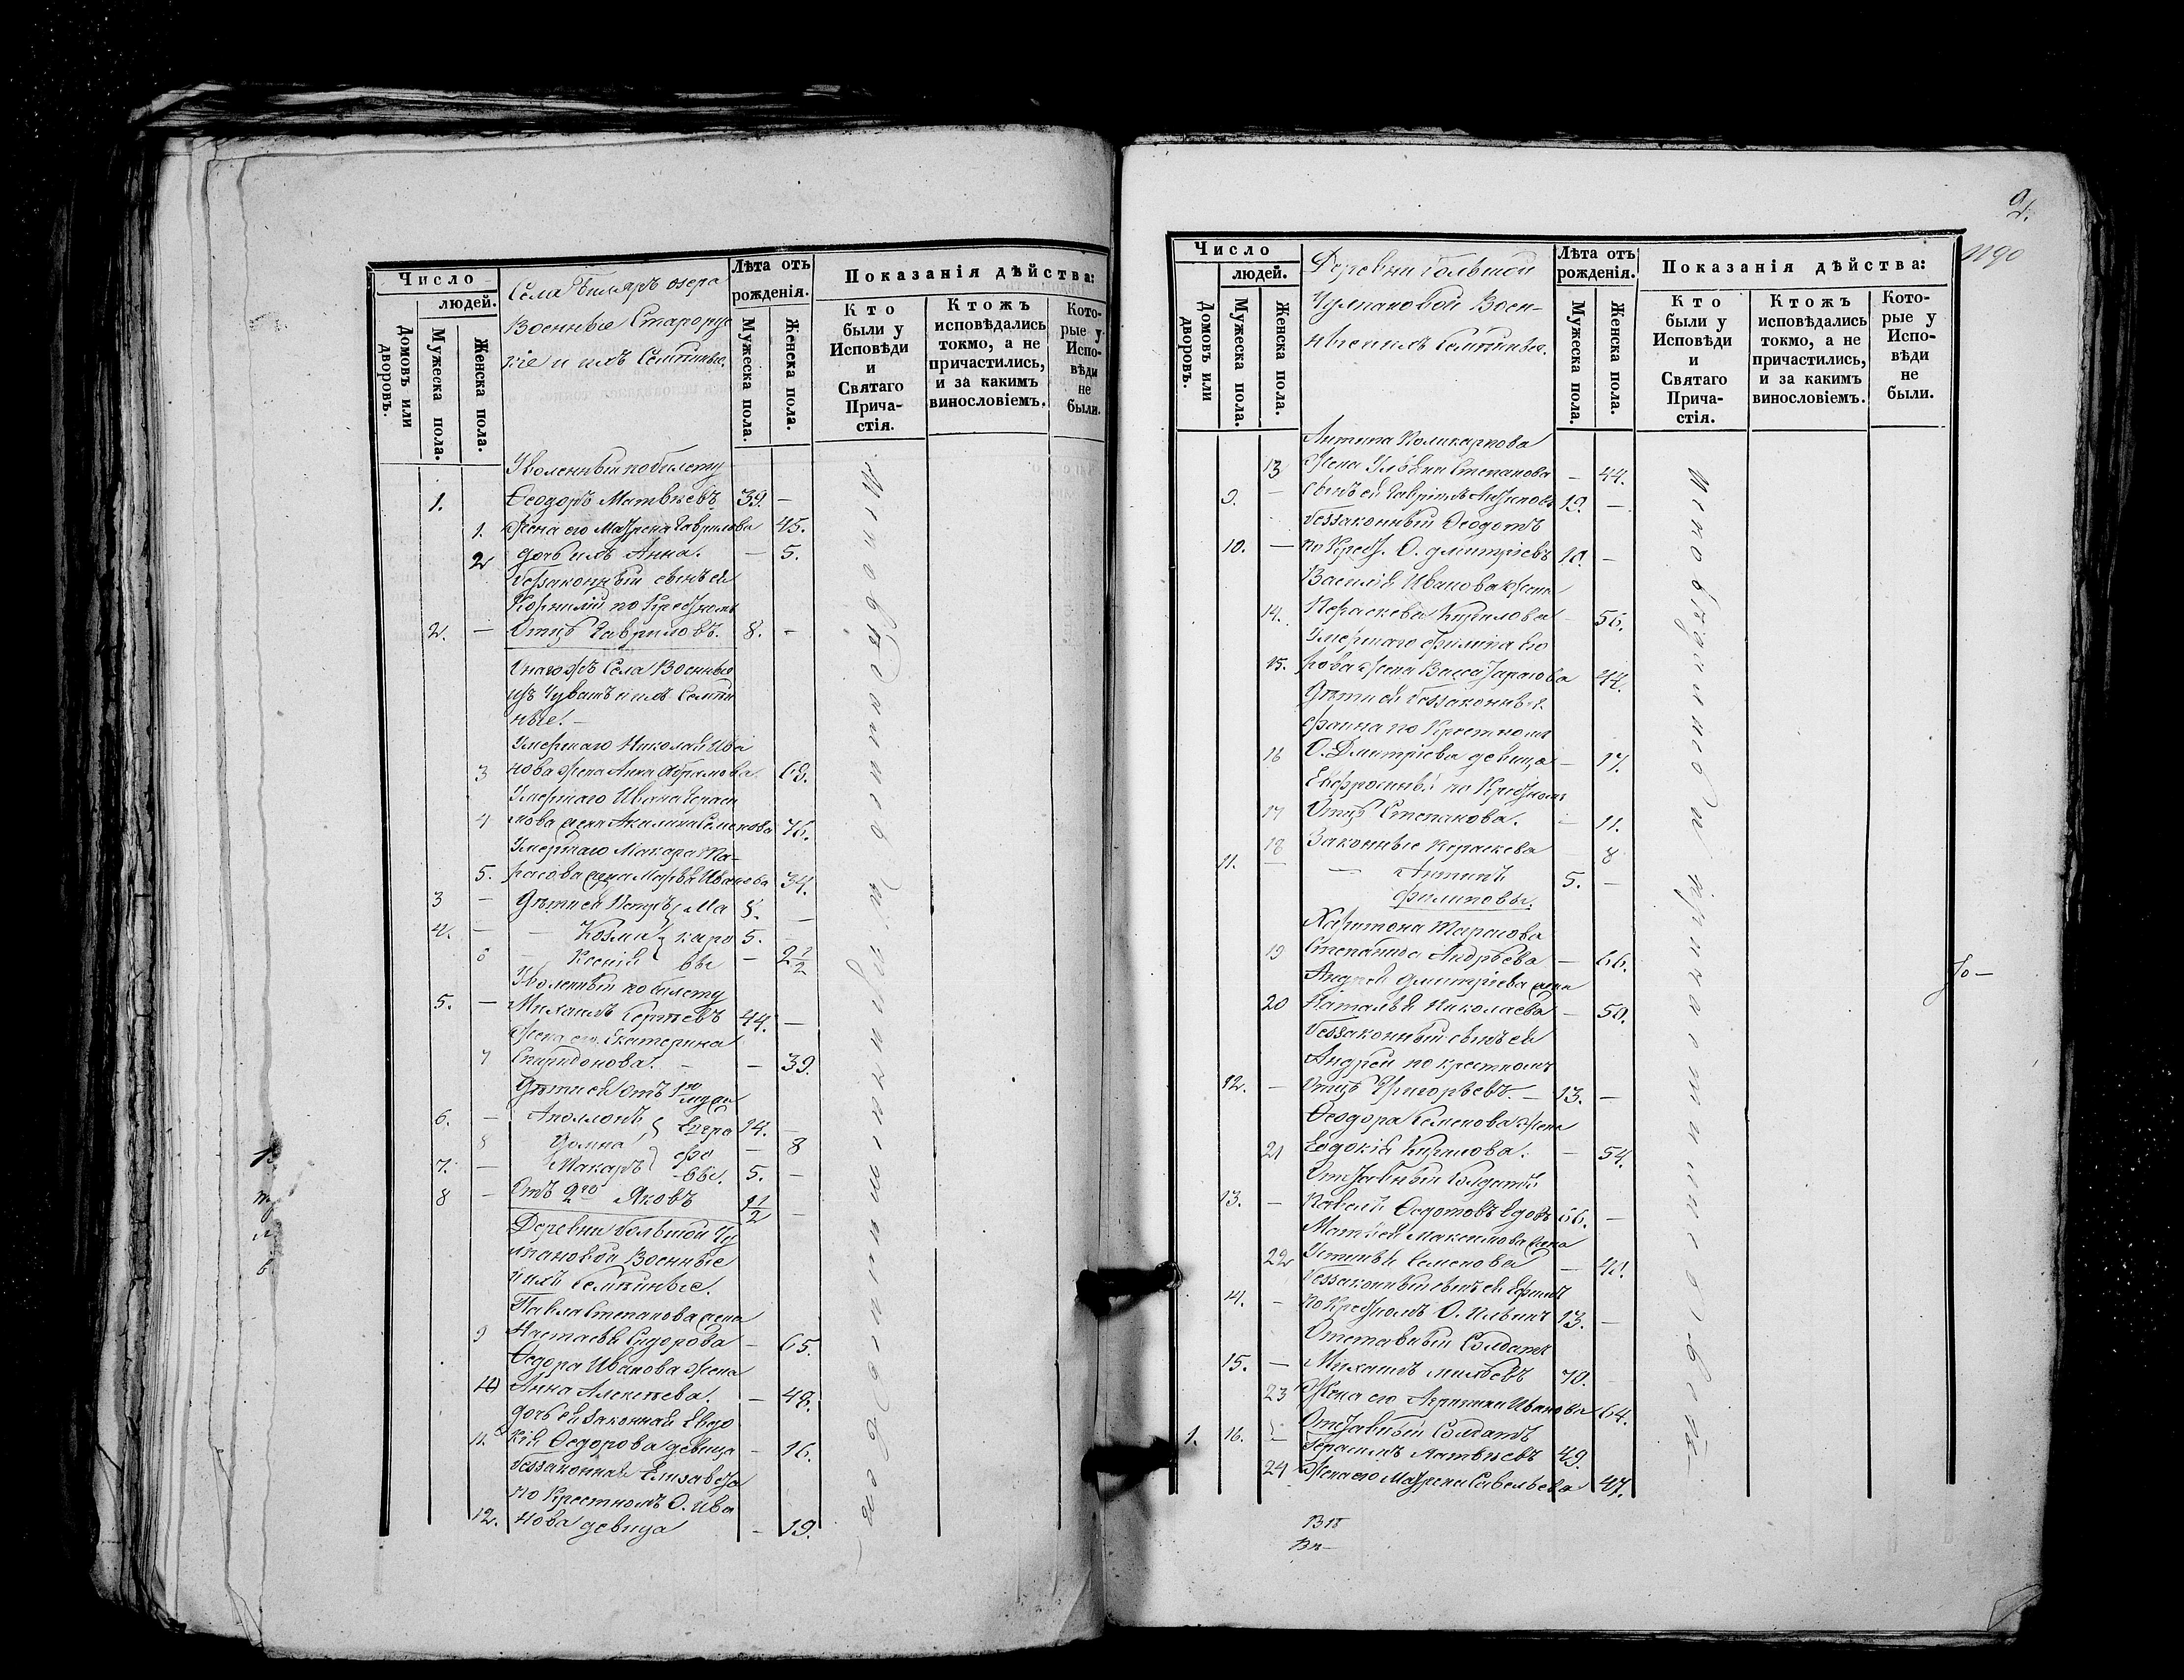 Число
людей.
Домовъ или дворовъ.
Мужеска пола.
Женска пола.
Села Биляръ озера
Военные Старорус
кіе и ихъ Семейные.
Лѣта отъ рожденія.
Мужеска пола.
Женска пола.
Показанія дѣйства:
Кто были у Исповѣди и Святаго Причастія.
Ктожъ исповѣдались токмо, а не причастились, и за какимъ винословіемъ.
Которые у Исповѣди не были.
Уволенный по билету
1. Ѳеодоръ Матвѣевъ 39. –
1. Жена его Матрена Гаврилова 45.
2 дочь ихъ Анна. – 5.
беззаконный сынъ ея
Корнилій по Крестному
2. – Отцу Гавриловъ. 8. –
Села Военные
изъ Чувашъ и ихъ Семей
ные. –
Умершаго Николая Ива
3 нова жена Анна Абрамова. 69.
Умершаго Ивана
4 жена Акилина Семенова 76.
Умершаго Макара Та-
5. расова жена Марья Иванова 34.
3 – Дѣти ея Петръ Ма 8.
4. – – Козма каро 5. –
6 – Ксенія вы – 2 1/2
Уволенный по билету
5. – Михаилъ Сергѣевъ 44. –
Жена его Екатерина
7 Спиридонова. – – 39.
Дѣти ея отъ 1го мужа
6. – Аполлонъ 14. –
8 Домна – 8
7. – Макаръ вы. 5. –
8 – Отъ 2го Яковъ 1 1/2 –
Деревни Большой Чу
лпановой Военные
и ихъ Семейные.
Павла Степанова жена
9 Настасья Сидорова – 65.
Ѳедора Иванова жена
10 Анна Алексѣева. – 48.
дочь ея законная Евдо
11. кія Ѳедорова девица – 16.
беззаконная Елизавета
по Крестномъ О. Ива
12. нова девица – 19.
9.
1190
Число
людей.
Домовъ или дворовъ.
Мужеска пола.
Женска пола.
Деревни Большой
Чулпановой Воен-
ные и ихъ Семейные.
Лѣта отъ рожденія.
Мужеска пола.
Женска пола.
Показанія дѣйства:
Кто были у Исповѣди и Святаго Причастія.
Ктожъ исповѣдались токмо, а не причастились, и за какимъ винословіемъ.
Которые у Исповѣди не были.
Антипа Поликарпова
13 жена Степанова – 44.
9. – Сынъ ея Гаврилъ Антиповъ 19. –
беззаконный Ѳеодотъ
10. – по Крест. О. Дмитріевъ 10. –
Василія Иванова жена
14. Параскева Кирилова 56.
Умершаго Филипа Его
15. рова жена Васса Тарасова 44.
Дѣти ея беззаконныя
Фаина по Крестномъ
16 О. Дмитріева девица – 17.
Ефросинья по Крестномъ
17 Отцу Степанова. – 11.
18 Законные Параскева 8
11. – Антипъ 5. –
Филиповы.
Харитона Тарасова
19 Степанида Андрѣева – 66.
Андрея Дмитріева жена
20 Наталья Николаева – 50.
беззаконный сынъ ея
Андрей по крестномъ
12. – Отцу Григорьевъ. – 13. –
Ѳеодора Семенова жена
21 Евдокія Кирилова. – 54.
Отставный Солдатъ
13. – Ѳедотовъ вдовъ 66. –
Матвея Максимова жена
22 Устинья Семенова – 41.
беззаконный сынъ ея Ефимъ
4. – по Крестномъ О. Ильинъ 13. –
Отставный Солдатъ
15. – Михаилъ 70.
23 Жена его Агрипина Иванова 64.
Отставный Солдатъ
1. 16. Герасимъ Матвѣевъ 49.
24 Жена его Матрена Савельева 47.